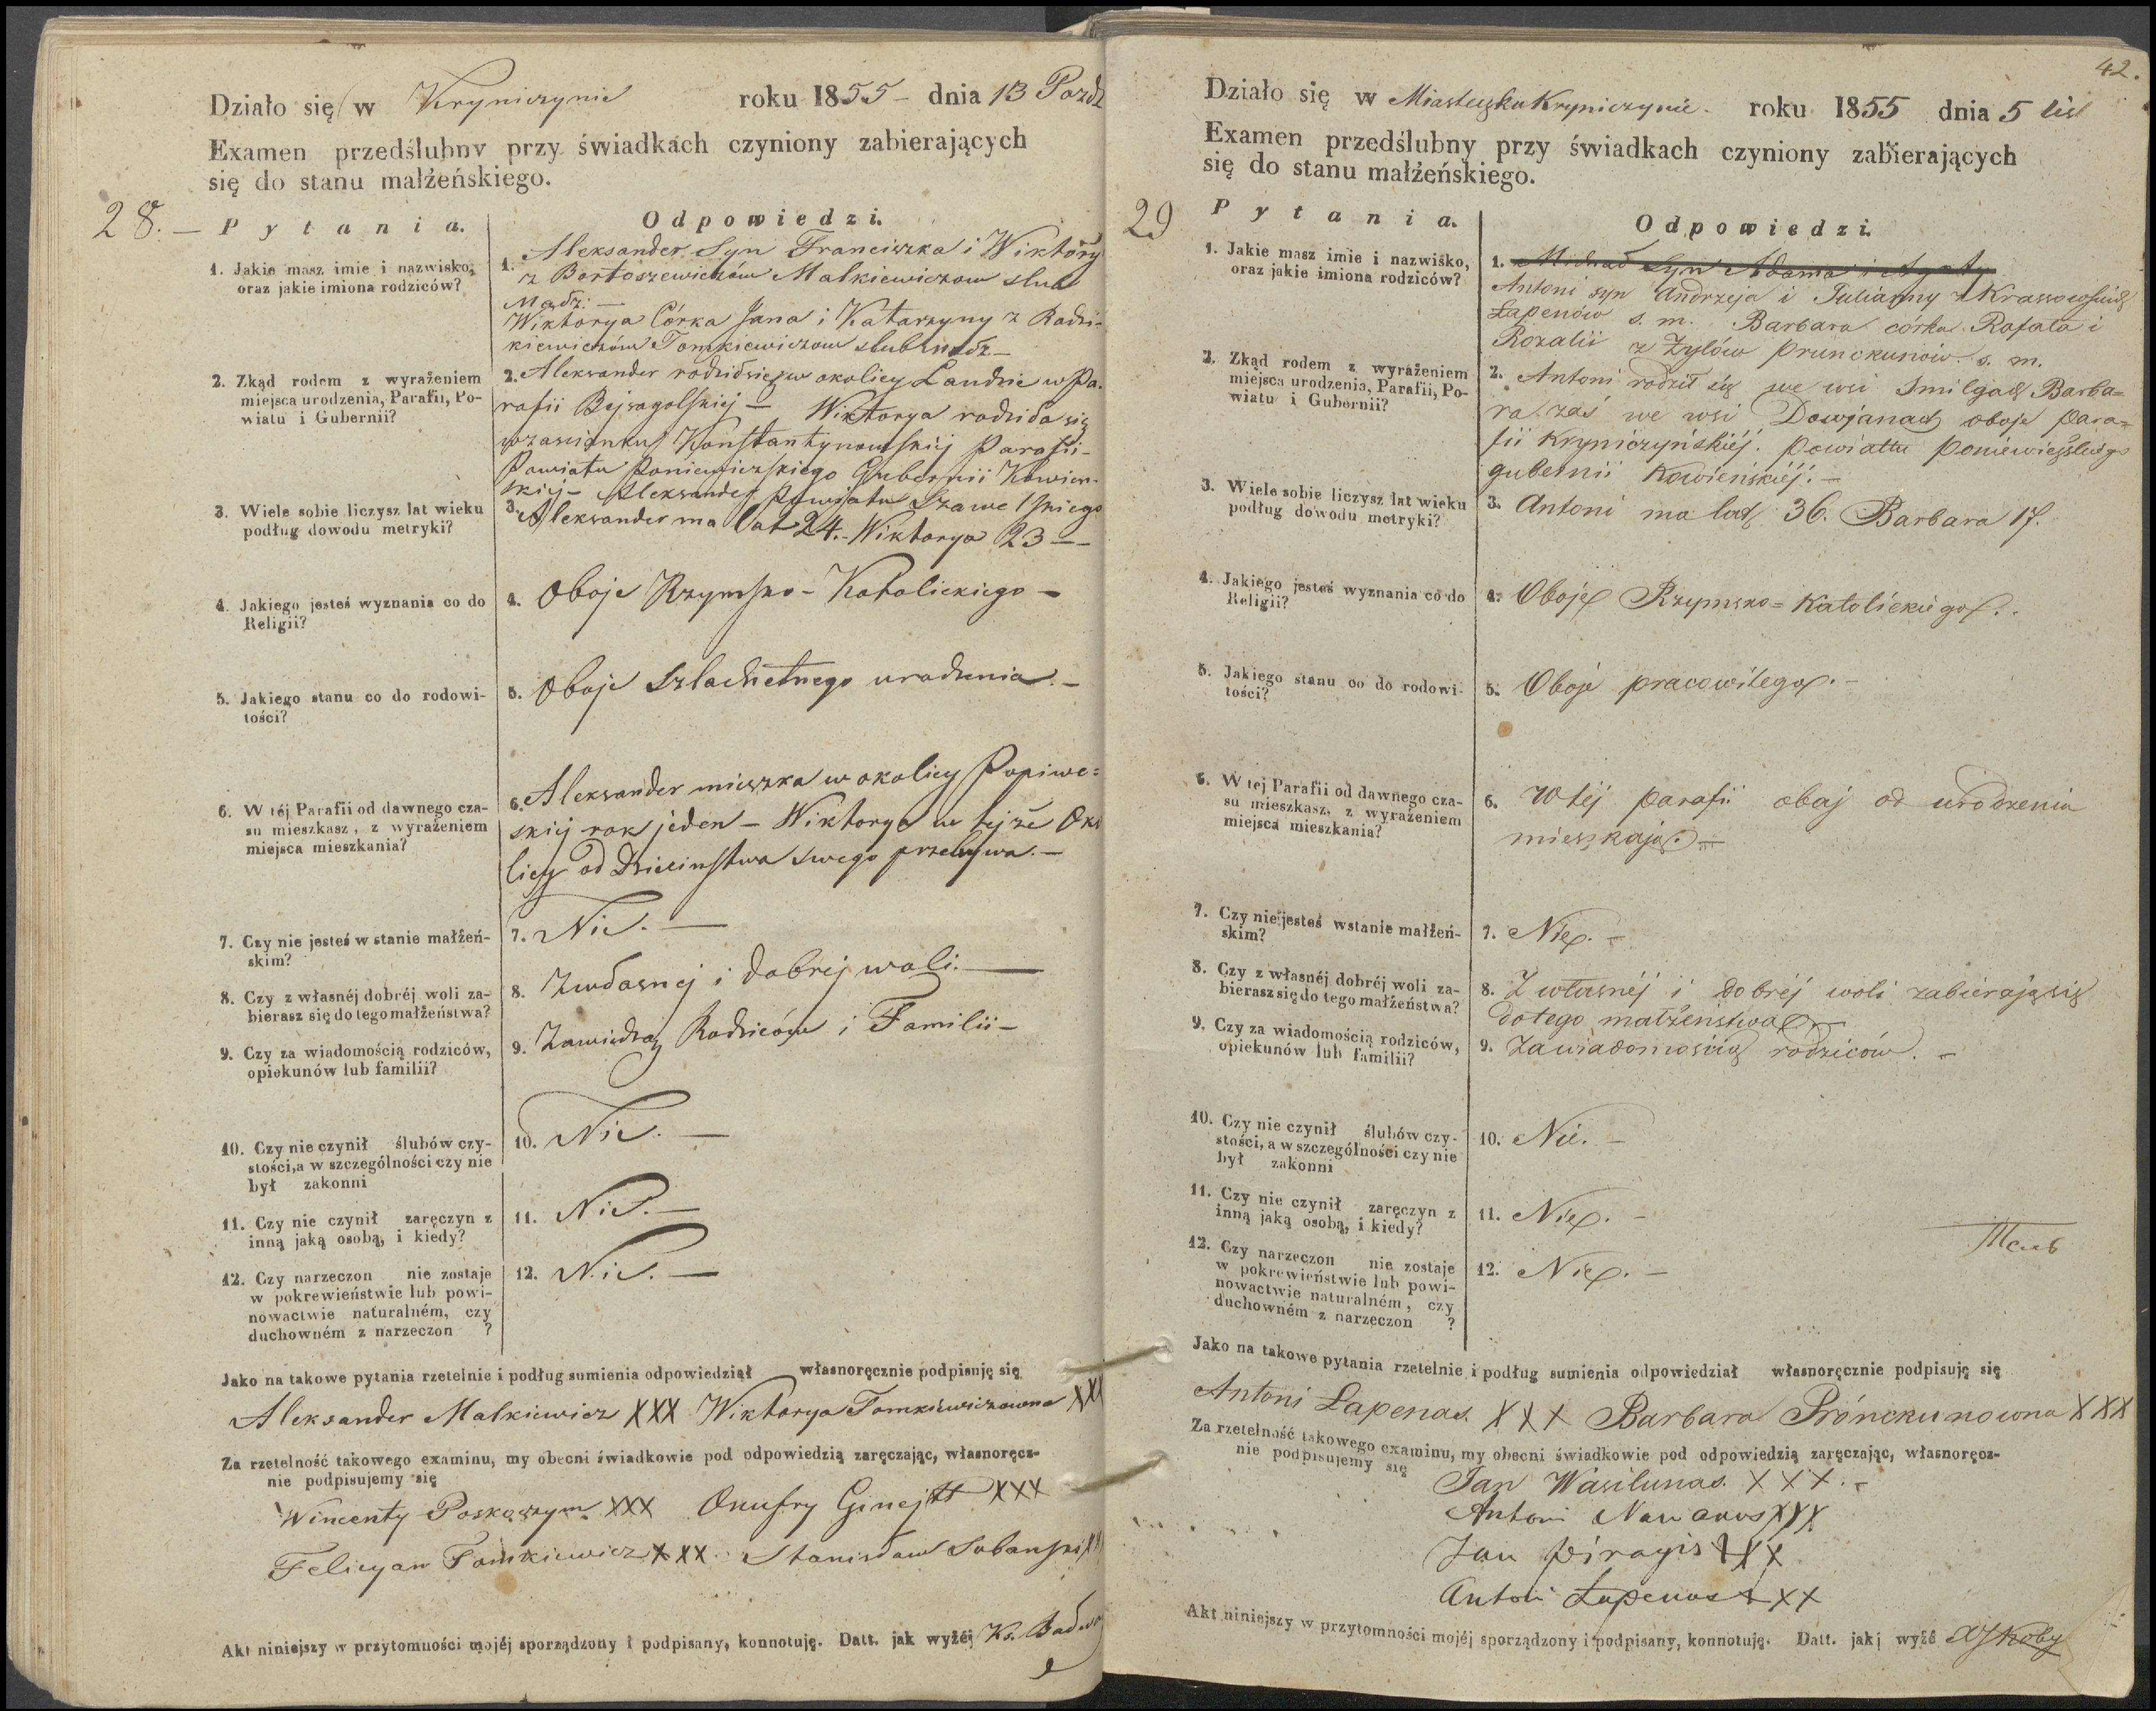 Działo się w Kryniczynie roku 1855 - dnia 13 Paźdz
Examen przedślubny przy świadkach czyniony zabierających
się do stanu małżeńskiego.
28. — Pytania. Odpowiedzi.
1. Jakie masz imie i nazwisko, oraz jakie imiona rodziców?
1. Aleksander Syn Franciszka i Wiktoryi
z Bortoszewiczów Malkiewiczow slub
Madz: —
Wiktorya Córka Jana i Katarzyny z Radzi-
kiewiczów Tomkiewiczow slub madz —
2. Zkąd rodem z wyrażeniem
miejsca urodzenia, Parafii, Po-
wiatu i Gubernii?
2. Aleksander rodził się w okolicy Laudzie w Pa-
rafii Bejsagolskiej — Wiktorya rodziła się
w zascianku Konstantynowskiej Parafii -
Powiatu Poniewiezskiego Gubernii Kowien-
skiej - Aleksander Powiatu Szawelskiego
3. Wiele sobie liczysz lat wieku
podług dowodu metryki?
3. Aleksander ma lat 24. - Wiktorya 23 —
4. Jakiego jesteś wyznania co do
Religii?
4. Oboje Rzymsko - Katolickiego -
5. Jakiego stanu co do rodowi-
tości?
5. Oboje Szlachetnego urodzenia. -
6. W téj Parafii od dawnego cza-
su mieszkasz, z wyrażeniem
miejsca mieszkania?
6. Aleksander mieszka w okolicy Popiwe=
skiej rok jeden - Wiktorya w tejże Oko
licy od Dzieciństwa swego przebywa. -
7. Czy nie jesteś w stanie małżeń-
skim?
7. Nie. —
8. Czy z własnéj dobréj woli za-
bierasz się do tego małżeństwa?
8. Zwłasnej i dobrej woli. —
9. Czy za wiadomością rodziców,
opiekunów lub familii?
9. Zawiedzą Rodziców i Familii -
10. Czy nie czynił ślubów czy-
stości, a w szczególności czy nie
był zakonni
10. Nie. —
11. Czy nie czynił zaręczyn z
inną jaką osobą, i kiedy?
11. Nie. —
12. Czy narzeczon nie zostaje
w pokrewieństwie lub powi-
nowactwie naturalném, czy
duchowném z narzeczon ?
12. Nie. —
Jako na takowe pytania rzetelnie i podług sumienia odpowiedział własnoręcznie podpisuję się
Aleksander Malkiewicz XXX Wiktorya Tomkiewiczowna XXX
Za rzetelność takowego examinu, my obecni świadkowie pod odpowiedzią zaręczając, własnoręcz-
nie podpisujemy się
Wincenty Poskoczym XXX Onufry Ginejtt XXX
Felicyan Tomkiewicz XXX Stanisław Sobanski XX
Akt niniejszy w przytomności mojéj sporządzony i podpisany, konnotuję. Datt. jak wyżéj Ks.
42.
Działo się w Miasteczku Kryniczynie. roku 1855 dnia 5 list
Examen przedślubny przy świadkach czyniony zabierających
się do stanu małżeńskiego.
29 Pytania. Odpowiedzi.
1. Jakie masz imie i nazwisko,
oraz jakie imiona rodziców?
1. Michał Syn Adama i Agaty
Antoni syn Andrzeja i Julianny z Krassowskich
Łapenów s. m. Barbara córka Rafała i
Rozalii z Zylów Prunckunów s. m.
2. Zkąd rodem z wyrażeniem
miejsca urodzenia, Parafii, Po-
wiatu i Gubernii?
2. Antoni rodził się we wsi Smilgach Barba=
ra zaś we wsi Dowjanach oboje para=
fii Kryniczyńskiéj. powiattu poniewiezskiego
gubernii Kowieńskiéj. -
3. Wiele sobie liczysz lat wieku
podług dowodu metryki?
3. Antoni ma lat 36. Barbara 17.
4. Jakiego jesteś wyznania co do
Religii?
4. Oboje Rzymsko = Katolickiego. .
5. Jakiego stanu co do rodowi-
tości?
5. Oboje pracowitego. -
6. W tej Parafii od dawnego cza-
su mieszkasz, z wyrażeniem
miejsca mieszkania?
6. W téj parafii obaj od urodzenia
mieszkają. —
7. Czy nie jesteś wstanie małżeń-
skim?
7. Nie. -
8. Czy z własnéj dobréj woli za-
bierasz się do tego małżeństwa?
8. Z własnéj i dobréj woli zabierają się
dotego małżeństwa. —
9. Czy za wiadomością rodziców,
opiekunów lub familii?
9. Zawiadomością rodziców. -
10. Czy nie czynił ślubów czy-
stości, a w szczególności czy nie
był zakonni
10. Nie. -
11. Czy nie czynił zaręczyn z
inną jaką osobą, i kiedy?
11. Nie. -
12. Czy narzeczon nie zostaje
w pokrewieństwie lub powi-
nowactwie naturalném, czy
duchowném z narzeczon ?
12. Nie. -
Jako na takowe pytania rzetelnie i podług sumienia odpowiedział własnoręcznie podpisuję się
Antoni Łapenas XXX Barbara Prónckunowna XXX
Za rzetelność takowego examinu, my obecni świadkowie pod odpowiedzią zaręczając, własnoręcz-
nie podpisujemy się
Jan Wasilunas. XXX. -
Antoni XXX
Jan Piragis XXX
Antoni Łapenas XXX
Akt niniejszy w przytomności mojéj sporządzony i podpisany, konnotuję. Datt. jak wyżé